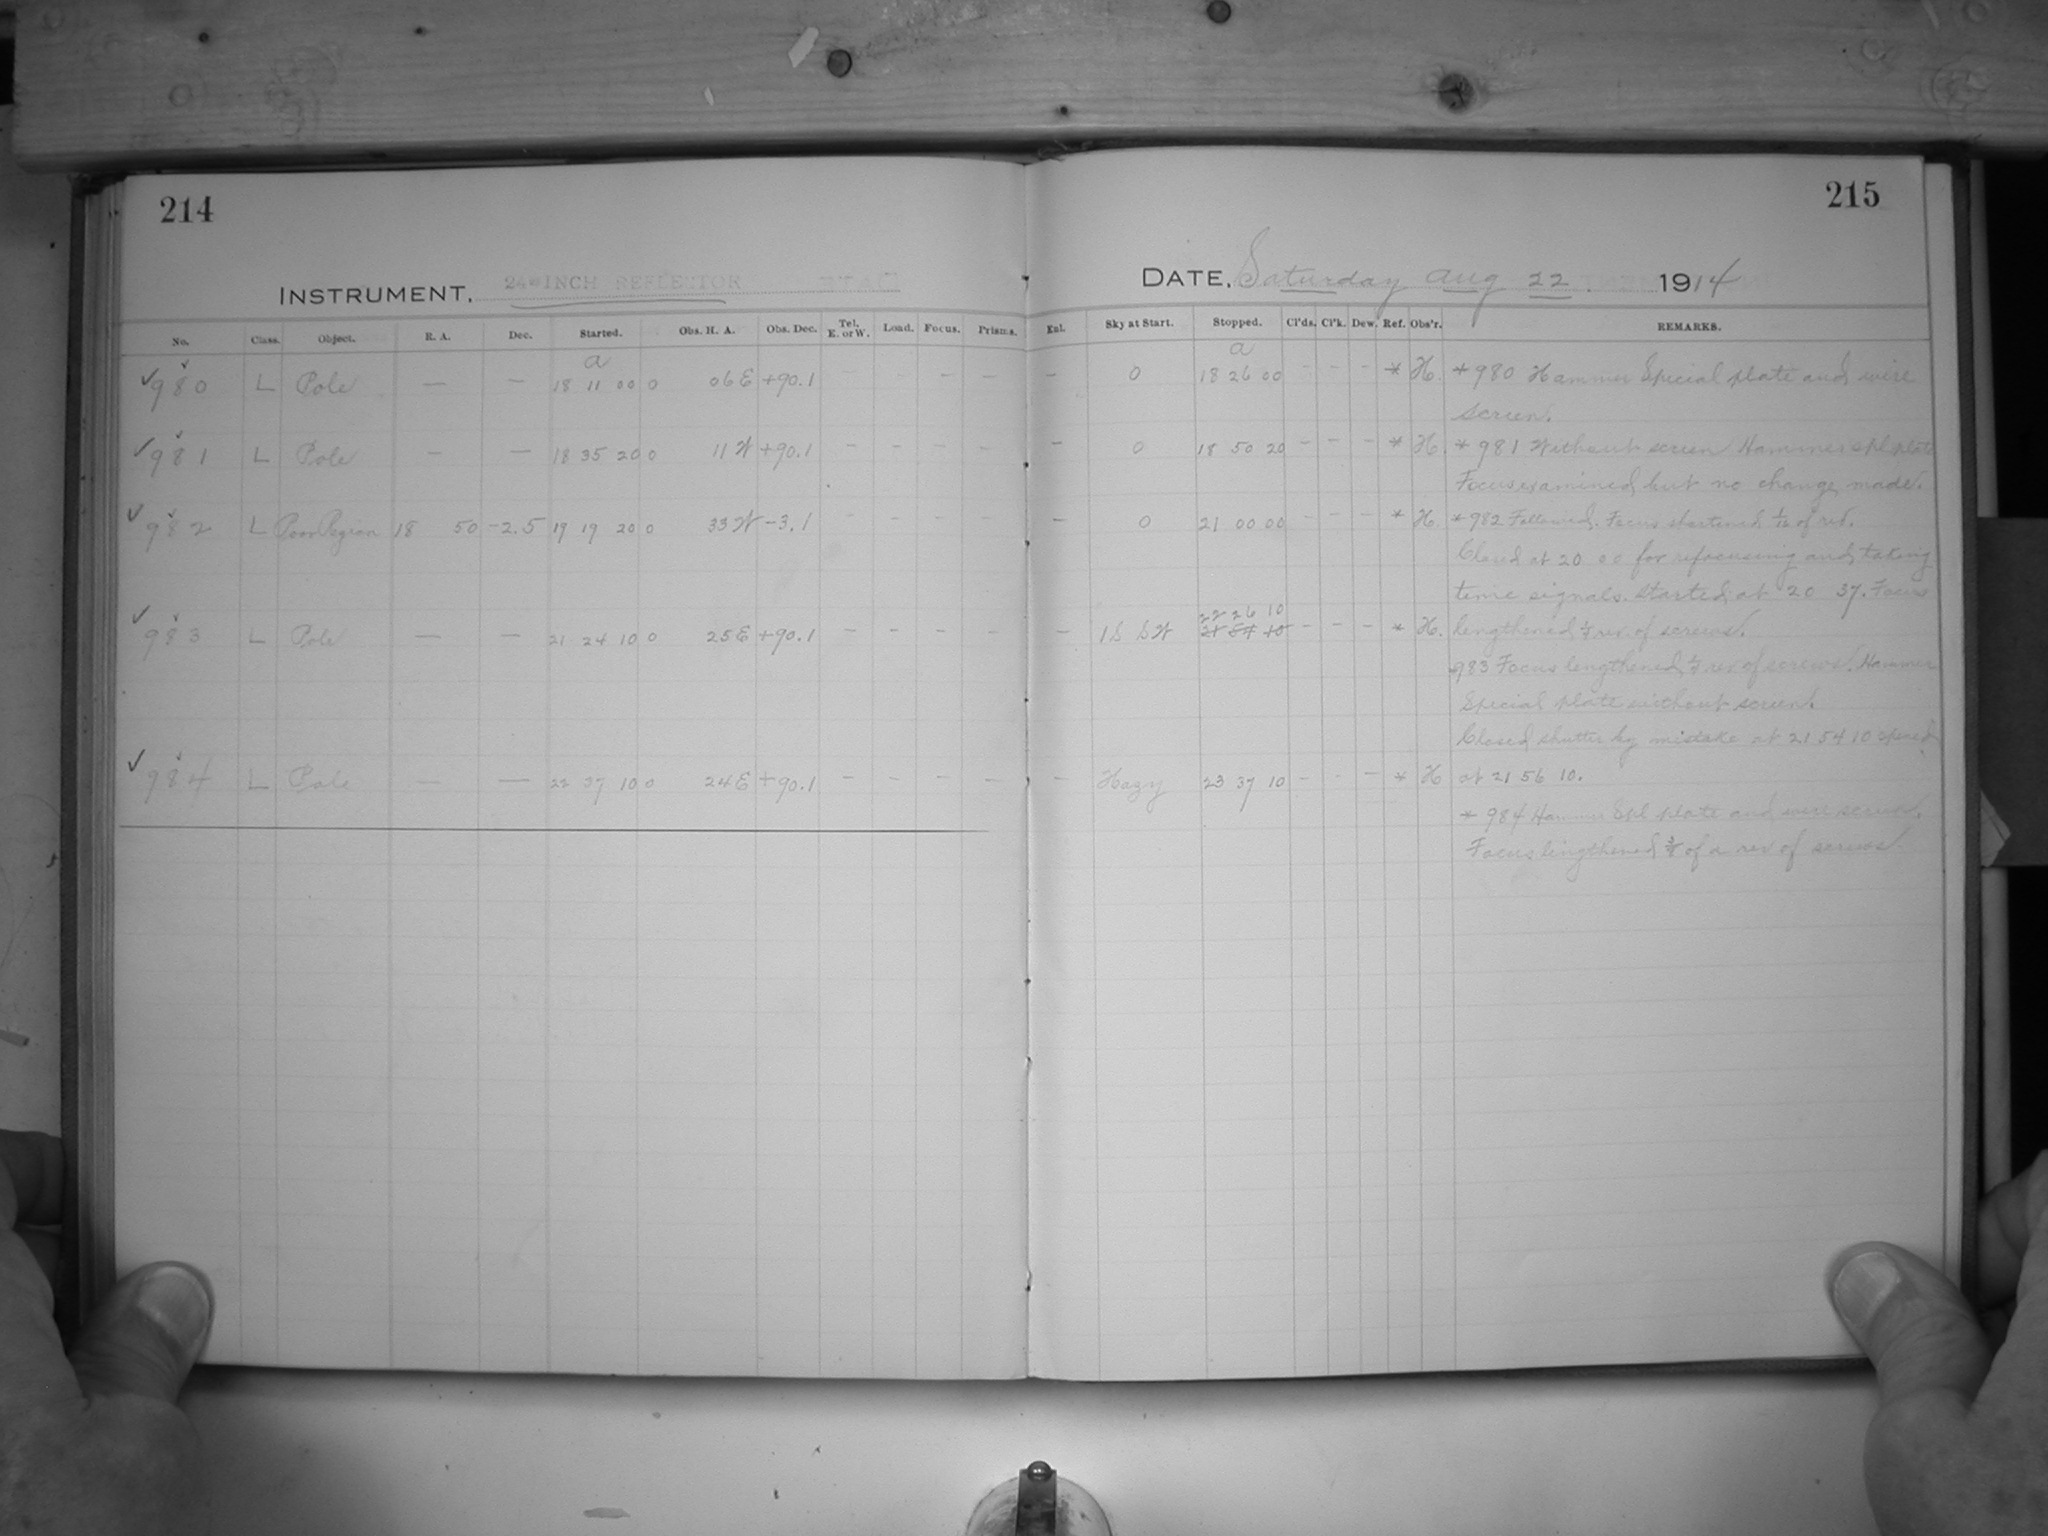 214
215
INSTRUMENT, 24-INCH REFLECTOR
DATE, Saturday Aug 22 1914
No. Class. Object. R. A. Dec. Started. Obs. H. A. Obs. Dec. Tel. E. or W. Load. Focus. Prisms. Exl. Sky at Start. Stopped. Cl'ds. Cl'k. Dew. Ref. Obs'r. REMARKS.
a a
980 L Pole — — 18 11 00 0 06 E +90.1 - - - - - 0 18 26 00 - - - * H. *980 Hammer Special plate and wire
screen.
981 L Pole — — 18 35 20 0 11 W +90.1 - - - - - 0 18 50 20 - - - * H. *981 Without screen Hammer spl plate
Focus examined but no change made.
982 L Poor Region 18 50 -2.5 19 19 20 0 33 W -3.1 - - - - - 0 21 00 00 - - - * H. *982 Followed. Focus shortened of rev.
Closed at 20 00 for refocusing and taking
time signals. Started at 20 37. Focus
22 26 10
983 L Pole — — 21 24 10 0 25 E +90.1 - - - - - 1 S SW 21 54 10 - - - * H. lengthened rev. of screws.
983 Focus lengthened rev of screws. Hammer
Special plate without screen.
Closed shutter by mistake at 21 54 10 opened
984 L Pole — — 22 37 10 0 24 E +90.1 - - - - - Hazy 23 37 10 - - - * H at 21 56 10.
* 984 Hammer Spl plate and wire screen.
Focus lengthened of a rev of screws.